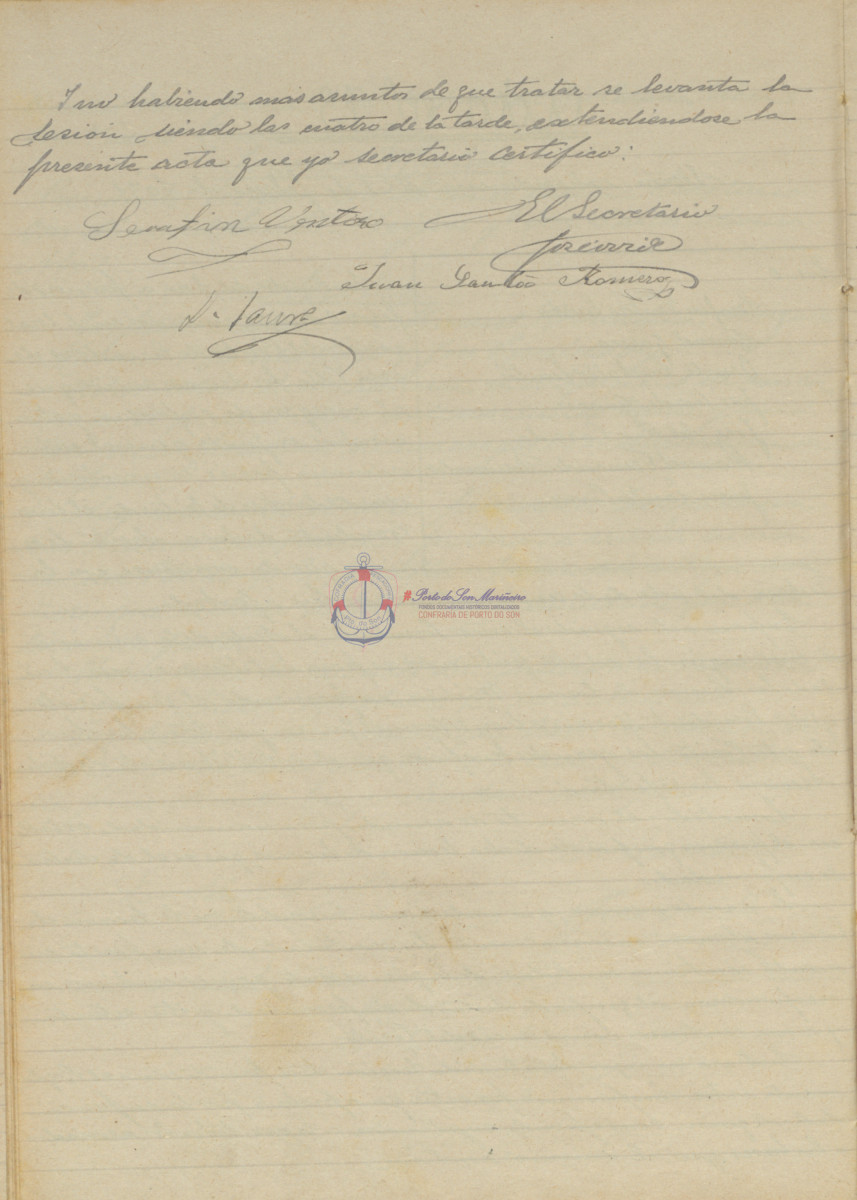 I no habiendo mas asuntos de que tratar se levanta la
sesión siendo las cuatro de la tarde, extendiendose la
presente acta que yo secretario certifico:
Serafin Ventoso El Secretario
Juan Santos Romero
Porto do Son Mariñeiro
FONDOS DOCUMENTAIS HISTÓRICOS DIXITALIZADOS
CONFRARÍA DE PORTO DO SON